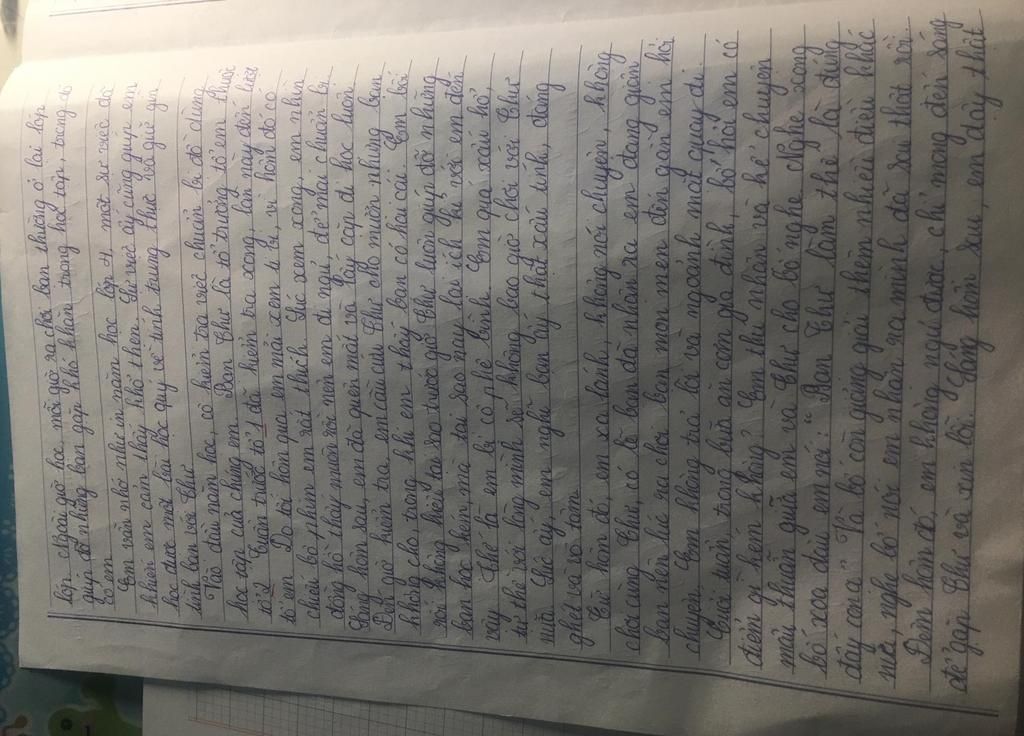 lớp. Ngoài giờ học, mỗi giờ ra chơi bạn thường ở lại lớp
giúp đỡ những bạn gặp khó khăn trong học tập, trong đó
có em.
Em vẫn nhớ như in năm học lớp 4, một sự việc đã
khiến em cảm thấy hổ thẹn. Sự việc ấy cũng giúp em
học được một bài học quý về tính trung thực và giữ gìn
tình bạn với Thư.
Vào đầu năm học, cô kiểm tra việc chuẩn bị đồ dùng
học tập của chúng em. Bạn Thư là tổ trưởng tổ em, thuộc
tổ 2. Tuần trước tổ 1 đã kiểm tra xong, lần này đến lượt
tổ em. Do tối hôm qua, em mải xem ti vi, vì hôm đó có
chiếu bộ phim em rất thích. Lúc xem xong, em nhìn
đồng hồ thấy muộn rồi nên em đi ngủ, để mai chuẩn bị.
Sáng hôm sau, em đã quên mất và lấy cặp đi học luôn.
Đến giờ kiểm tra, em cầu cứu Thư cho mượn nhưng bạn
không cho trong khi em thấy bạn có hai cái. Em bối
rối không hiểu tại sao trước giờ Thư luôn giúp đỡ những
bạn học kém mà tại sao nay lại ích kỉ với em đến
vậy. Thế là em bị cô phê bình. Em quá xấu hổ,
tự thề với lòng mình sẽ không bao giờ chơi với Thư
nữa. Lúc ấy, em nghĩ bạn ấy thật xấu tính, đáng
ghét và vô tâm.
Từ hôm đó, em xa lánh, không nói chuyện, không
chơi cùng Thư, có lẽ bạn đã nhận ra em đang giận
bạn nên lúc ra chơi bạn mon men đến gần em hỏi
chuyện. Em không trả lời và ngoảnh mặt quay đi.
Cuối tuần, trong bữa ăn cơm gia đình, bố hỏi em có
điểm gì kém không? Em thú nhận và kể chuyện
mâu thuẫn giữa em và Thư cho bố nghe. Nghe xong
bố xoa đầu em nói: "Bạn Thư làm thế là đúng
đấy con ạ". Và bố còn giảng giải thêm nhiều điều khác
nữa, nghe bố nói em nhận ra mình đã sai thật rồi.
Đêm hôm đó, em không ngủ được, chỉ mong đến sáng
để gặp Thư và xin lỗi. Sáng hôm sau, em dậy thật